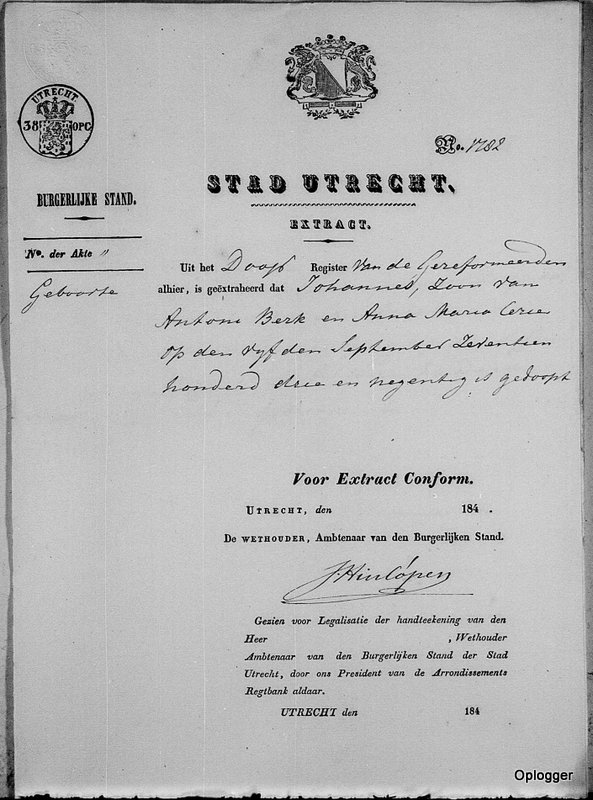 UTRECHT.
38 OPC
No. 1782
BURGERLIJKE STAND.
STAD UTRECHT.
EXTRACT.
No. der Akte "
Geboorte
Uit het Doop Register Van de Gereformeerden
alhier, is geëxtraheerd dat Johannes, Zoon van
Antoni Berk en Anna Maria
op den vyfden September Zeventien
honderd drie en negentig is gedoopt
Voor Extract Conform.
UTRECHT, den 184 .
De WETHOUDER, Ambtenaar van den Burgerlijken Stand.
J. Hinlópen
Gezien voor Legalisatie der handteekening van den
Heer , Wethouder
Ambtenaar van den Burgerlijken Stand der Stad
Utrecht, door ons President van de Arrondissements
Regtbank aldaar.
UTRECHT den 184
Oplogger